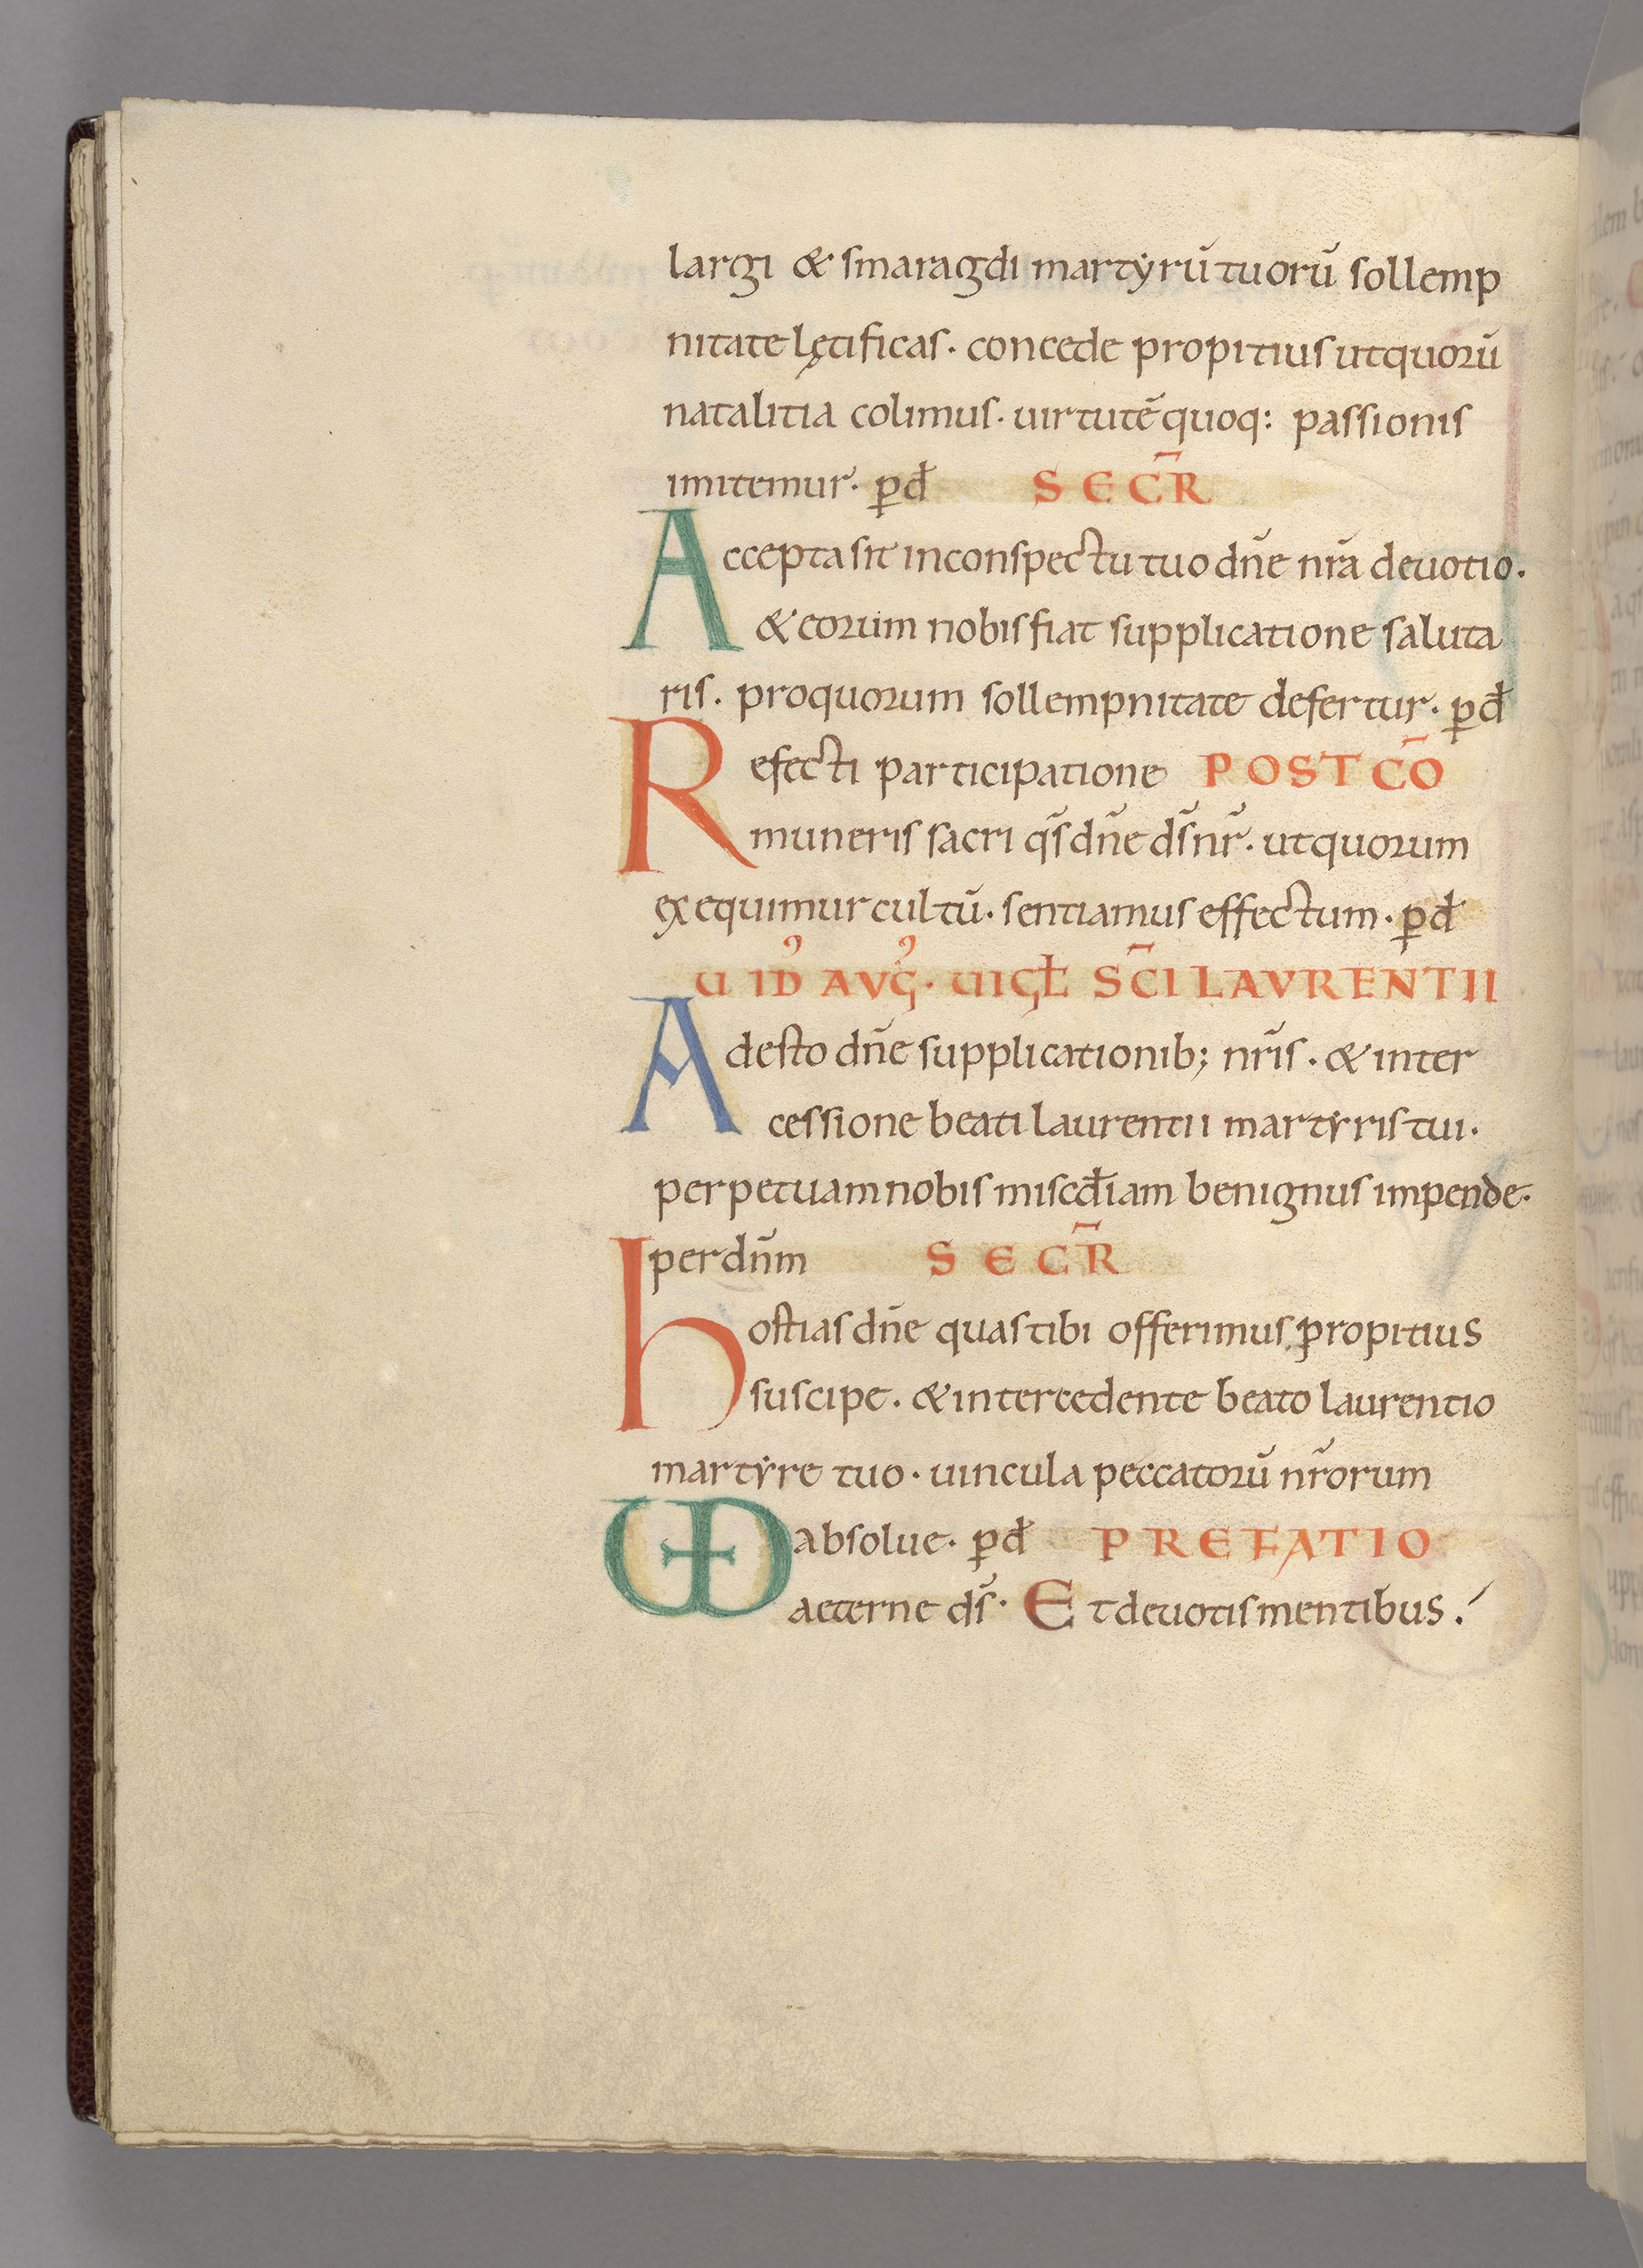 largi & smaragdi martyrū tuorū sollemp
nitate lętificas· concede propitius utquorū
natalitia colimus· uirtutē quoq: passionis
imitemur· p̱đ SEC̄R
Accepta sit inconspectu tuo dn̄e nr̄a deuotio·
& eorum nobis fiat supplicatione saluta
ris· proquorum sollempnitate defertur· p̱đ
Refecti participatione POST CŌ
muneris sacri qs̄ dn̄e ds̄ nr̄· utquorum
exequimur cultū· sentiamus effectum· p̱đ
U ID' AVG'· UIGŁ SC̄I LAVRENTII
Adesto dn̄e supplicationib; nr̄is· & inter
cessione beati laurentii martyris tui·
perpetuam nobis miscđiam benignus impende·
perdn̄m SEC̄R
hostias dn̄e quas tibi offerimus propitius
suscipe· & intercedente beato laurentio
martyre tuo· uincula peccatorū nr̄orum
absolue· p̱đ PREFATIO
UD aeterne ds̄· Et deuotis mentibus·